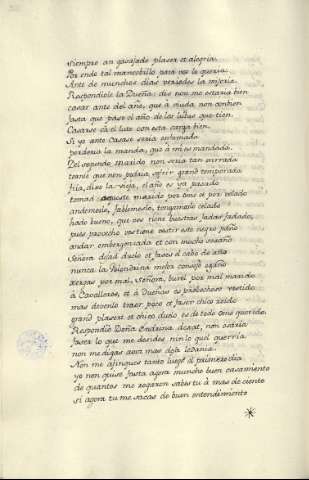 siempre an gasajade plaser et alegria
Por ende tal mancebillo para vos lo querria
Ante de munchos dias veriades la mejoria
Respondiole la Dueña: dis non me estaria bien
casar ante del año, que á viuda non convien
fasta que pase el año de los lutos que tien
Casarse ca el luto con esta carga vien
Si yo ante casase seria enfamada
perderia la manda, que á mi es mandada
Del segundo marido non seria tan onrrada
ternie que non podria sofrir grand temporada
Fija, dixo la vieja, el año es ya pasado
tomad aqueste marido por ome et por velado
andemoslo, fablemoslo, tengamoslo celado
hado bueno, que vos tiene vuestras fadas fadado,
que provecho vos tiene vestir este negro paño
andar embergonzada et con mucho sosaño
Señora dejad duelo et faced el cabo de año
nunca la golondrina mejor consejó ogaño
xergas por mal, Señora, burel por mal marido
á Cavalleros, et á Dueñas es provechoso vestido
mas devenlo traer poco et facer chico roido
grand plaser et chico duelo es de todo ome querido
Respondió Doña Endrina dejat, non osaria
fasta lo que me desides nin lo quel querria
non me digas agora mas desa ledania
Non me afinques tanto luego el primero dia
yo non quise fasta agora muncho buen casamiento
de quantos me rogaron sabes tu á mas de ciento
si agora tu me sacas de buen entendimiento